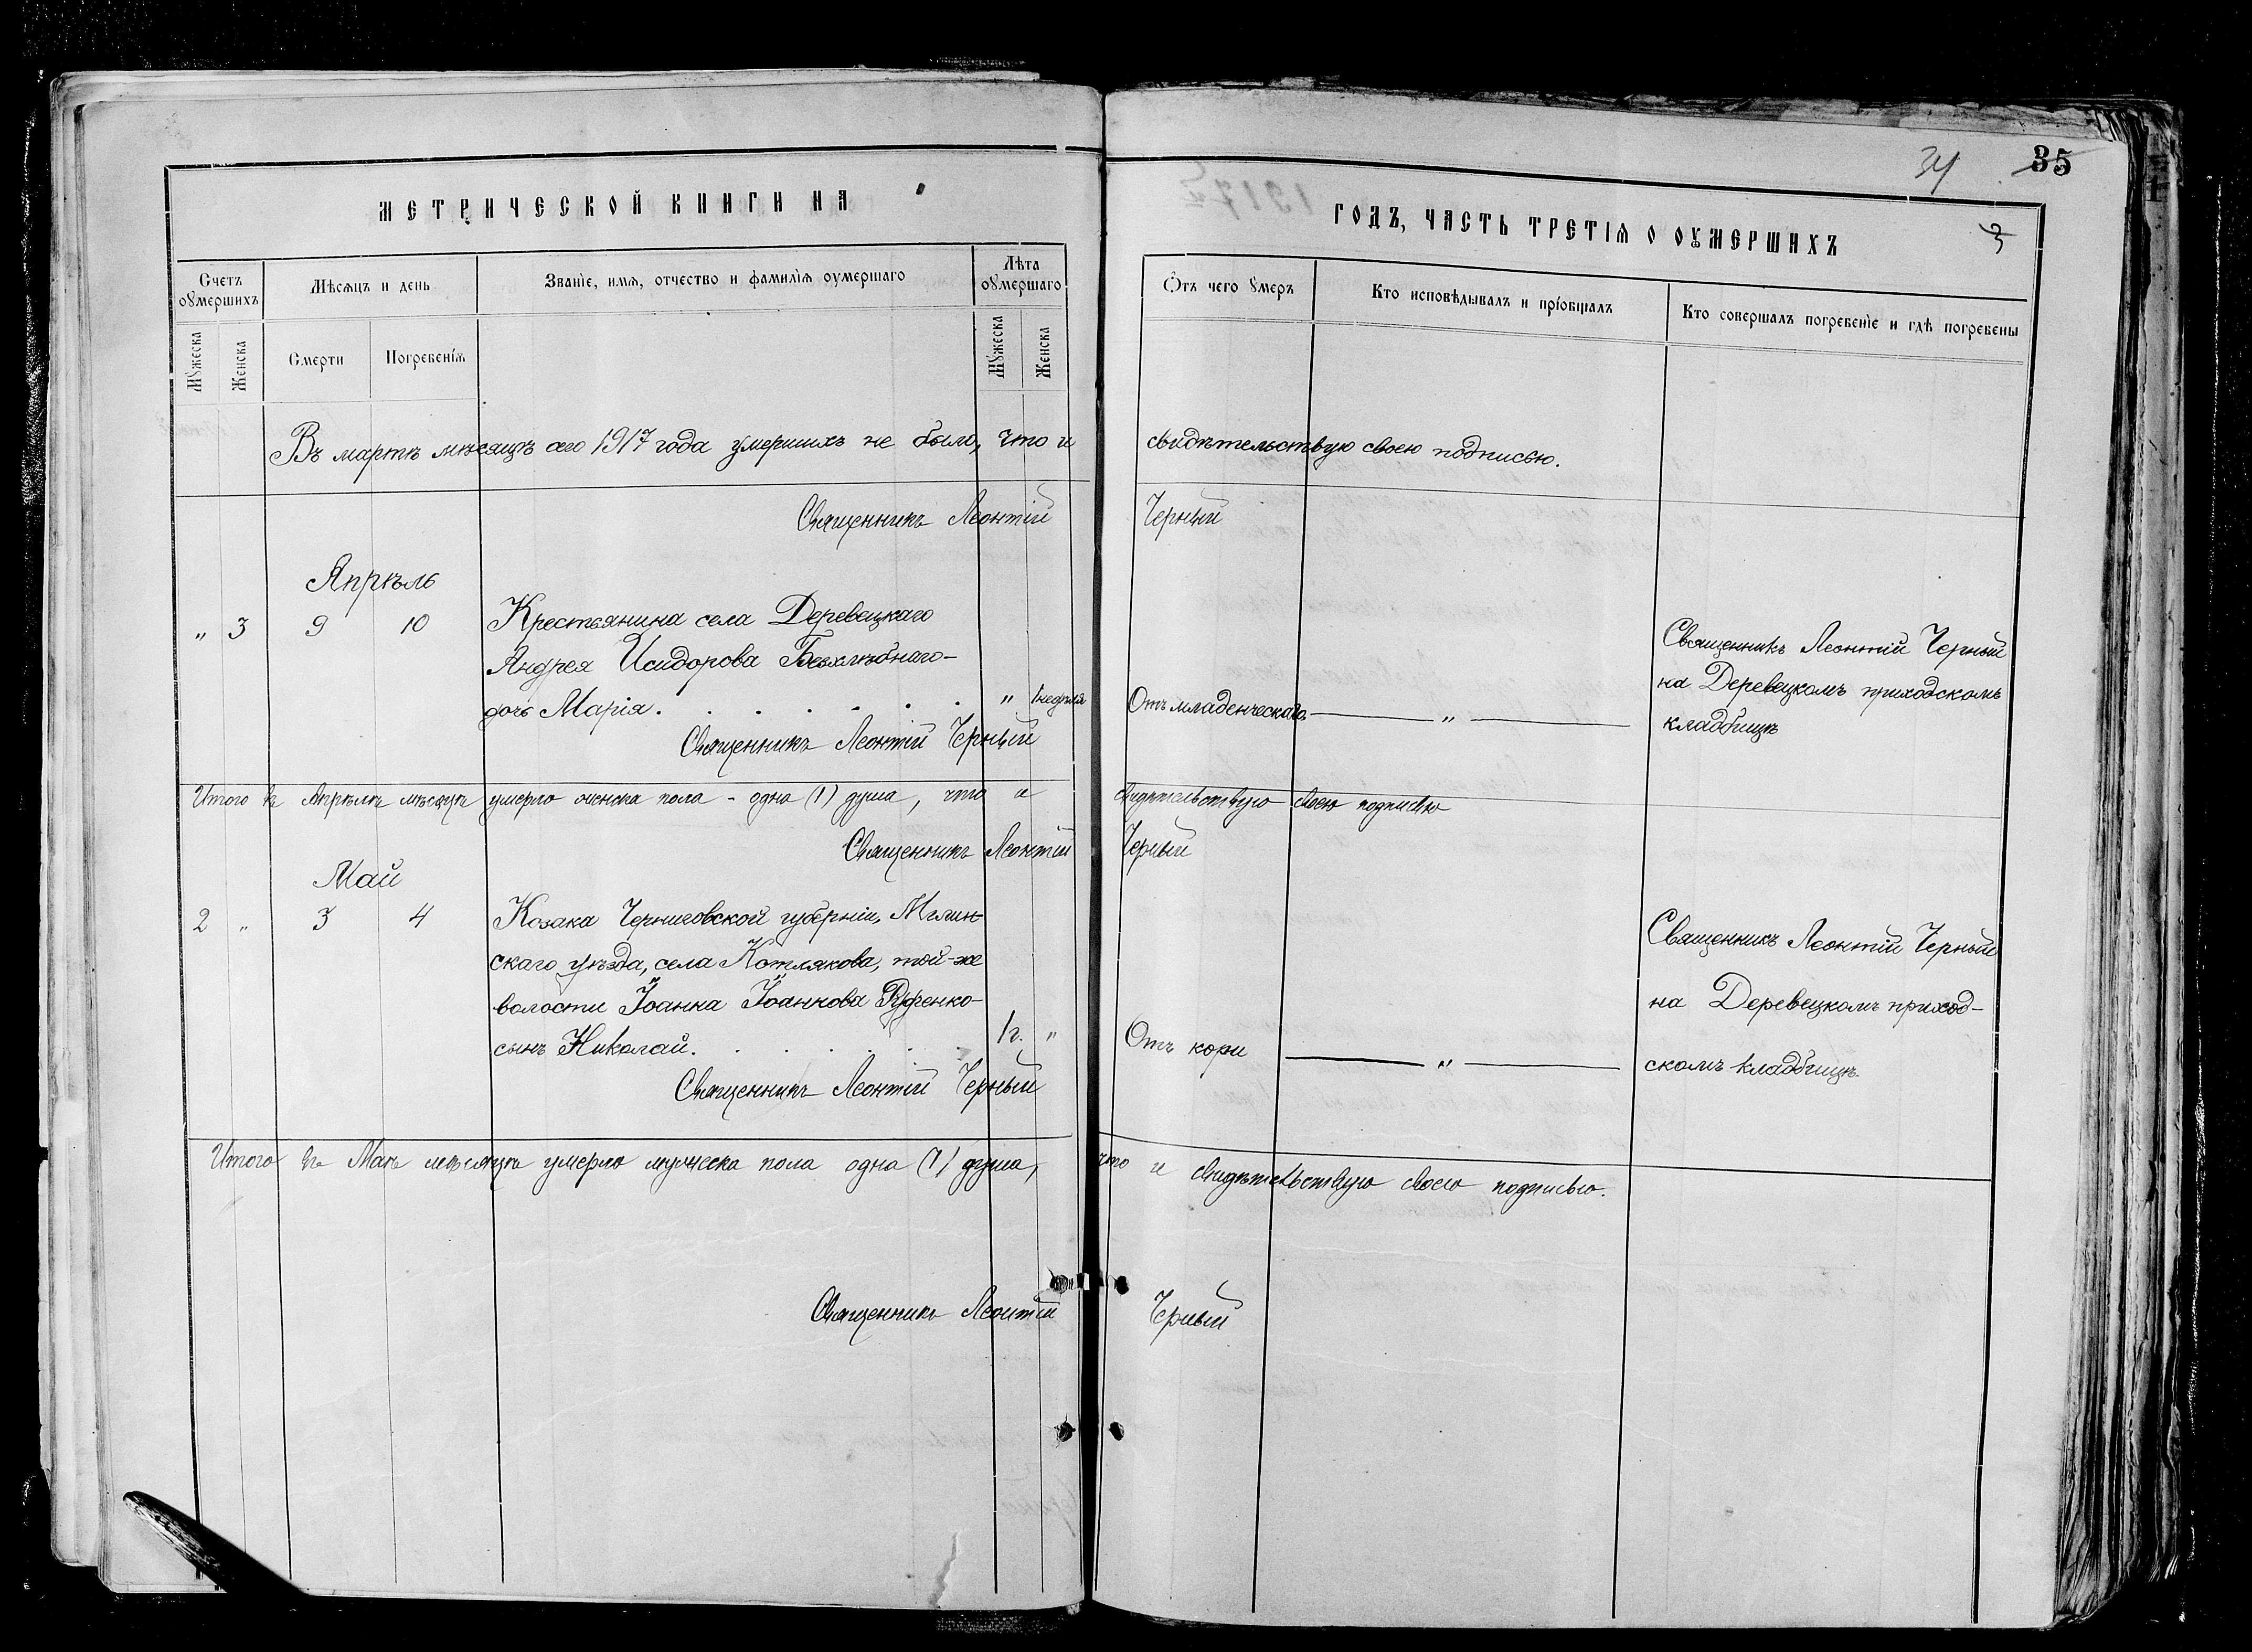 34 35
МЕТРИЧЕСКОЙ КНИГИ НА
ГОДЪ, ЧАСТЬ ТРЕТІѦ О ОУМЕРШИХЪ
3
Счетъ оумершихъ
Мѣсѧцъ и день
Званіе, имѧ, отчество и фамилїѧ оумершаго
Лѣта оумершаго
Ѿтъ чего умеръ
Кто исповѣдывалъ и прїобщалъ
Кто совершалъ погребенїе и гдѣ погребены
Мужеска
Женска
Смерти
Погребенїѧ
Мужеска
Женска
Въ мартѣ мѣсяцѣ сего 1917 года умершихъ не было, что и свидѣтельствую своею подписью.
Священникъ Леонтій Черный
Апрѣль
„ 3 9 10 Крестьянина села Деревецкаго
Андрея Исидорова Безхлѣбнаго-
дочь Марія . . . . . . . „ 1 недѣля
Отъ младенческаго. — „ —
Священникъ Леонтій Черный
на Деревецкомъ приходскомъ
кладбищѣ
Священникъ Леонтій Черный
Итого въ Апрѣлѣ мѣсяцѣ умерло женска пола - одна (1) душа, что и свидѣтельствую своею подписью
Священникъ Леонтій Черный
Май
2 „ 3 4 Козака Черниговской губерніи, Мглин-
скаго уѣзда, села Котлякова, той-же
волости Іоанна Іоаннова Руденко-
сынъ Николай. . . . . . . 1 г. „
Отъ кори — „ —
Священникъ Леонтій Черный
на Деревецкомъ приход-
скомъ кладбищѣ.
Священникъ Леонтій Черный
Итого въ Маѣ мѣсяцѣ умерло мужеска пола одна (1) душа, что и свидѣтельствую своею подписью.
Священникъ Леонтій Черный